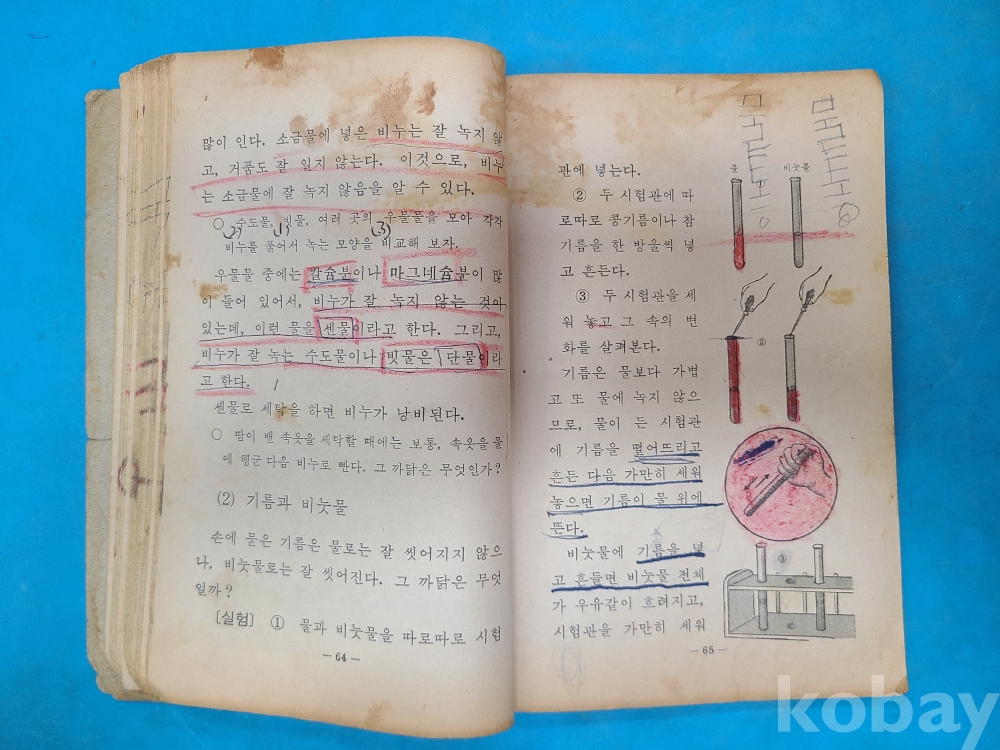 많이 인다. 소금물에 넣은 비누는 잘 녹지 않
고, 거품도 잘 일지 않는다. 이것으로, 비누
는 소금물에 잘 녹지 않음을 알 수 있다.
○ 수도물, 빗물, 여러 곳의 우물물을 모아 각각
(2) (1) (3)
비누를 풀어서 녹는 모양을 비교해 보자.
우물물 중에는 칼슘분이나 마그네슘분이 많
이 들어 있어서, 비누가 잘 녹지 않는 것이
있는데, 이런 물을 센물이라고 한다. 그리고,
비누가 잘 녹는 수도물이나 빗물은 단물이라
고 한다.
센물로 세탁을 하면 비누가 낭비된다.
○ 땀이 밴 속옷을 세탁할 때에는 보통, 속옷을 물
에 헹군 다음 비누로 빤다. 그 까닭은 무엇인가?
(2) 기름과 비눗물
손에 묻은 기름은 물로는 잘 씻어지지 않으
나, 비눗물로는 잘 씻어진다. 그 까닭은 무엇
일까?
[실험] ① 물과 비눗물을 따로따로 시험
— 64 —
관에 넣는다.
② 두 시험관에 따
로따로 콩기름이나 참
기름을 한 방울씩 넣
고 흔든다.
③ 두 시험관을 세
워 놓고 그 속의 변
화를 살펴본다.
기름은 물보다 가볍
고 또 물에 녹지 않으
므로, 물이 든 시험관
에 기름을 떨어뜨리고
흔든 다음 가만히 세워
놓으면 기름이 물 위에
뜬다.
비눗물에 기름을 넣
고 흔들면 비눗물 전체
가 우유같이 흐려지고,
시험관을 가만히 세워
물 비눗물
②
③
— 65 —
kobay